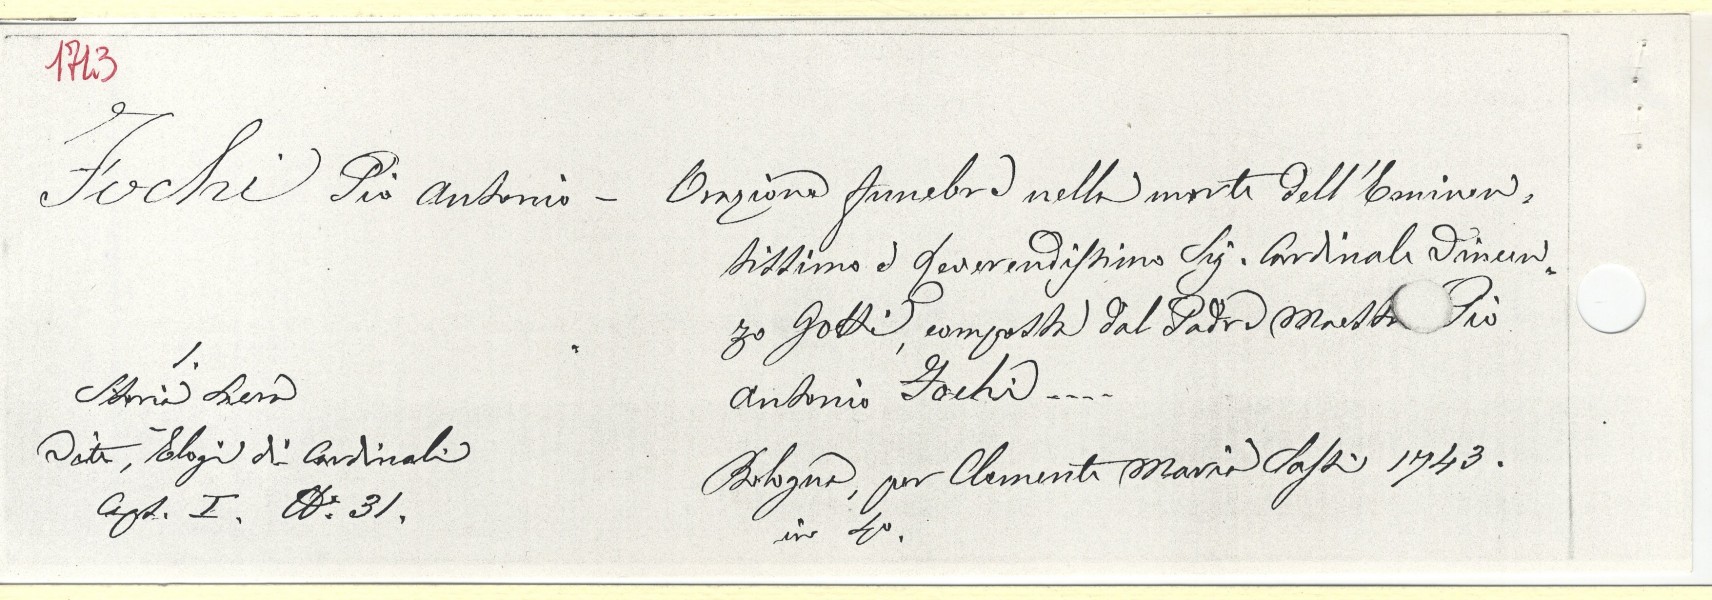 1743
Fochi Pio Antonio - Orazione funebre nella morte dell'Eminen=
tissimo e Reverendissimo Sig. Cardinale Vincen=
zo Gotti, composta dal Padre Maestro Pio
Antonio Fochi ....
Bologna, per Clemente Maria Sassi 1743.
in 4°.
1.
Storia Sacra
Vite, Elogi di Cardinali
Cart. I. N.° 31.